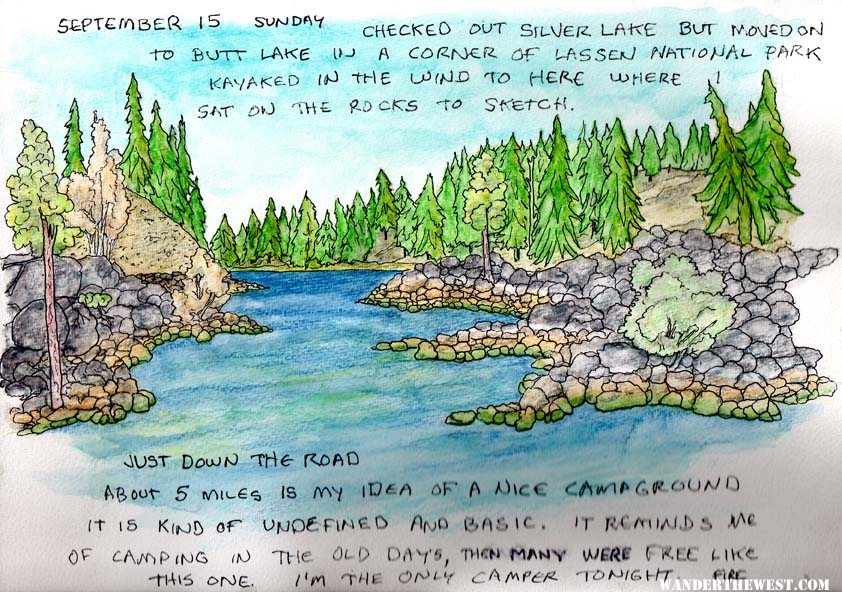 SEPTEMBER 15 SUNDAY CHECKED OUT SILVER LAKE BUT MOVED ON
TO BUTT LAKE IN A CORNER OF LASSEN NATIONAL PARK
KAYAKED IN THE WIND TO HERE WHERE I
SAT ON THE ROCKS TO SKETCH.
JUST DOWN THE ROAD
ABOUT 5 MILES IS MY IDEA OF A NICE CAMAGROUND
IT IS KIND OF UNDEFINED AND BASIC. IT REMINDS ME
OF CAMPING IN THE OLD DAY'S, THEN MANY WERE FREE LIKE
THIS ONE. I'M THE ONLY CAMPER TONIGHT. FIRE
WANDERTHEWEST.COM